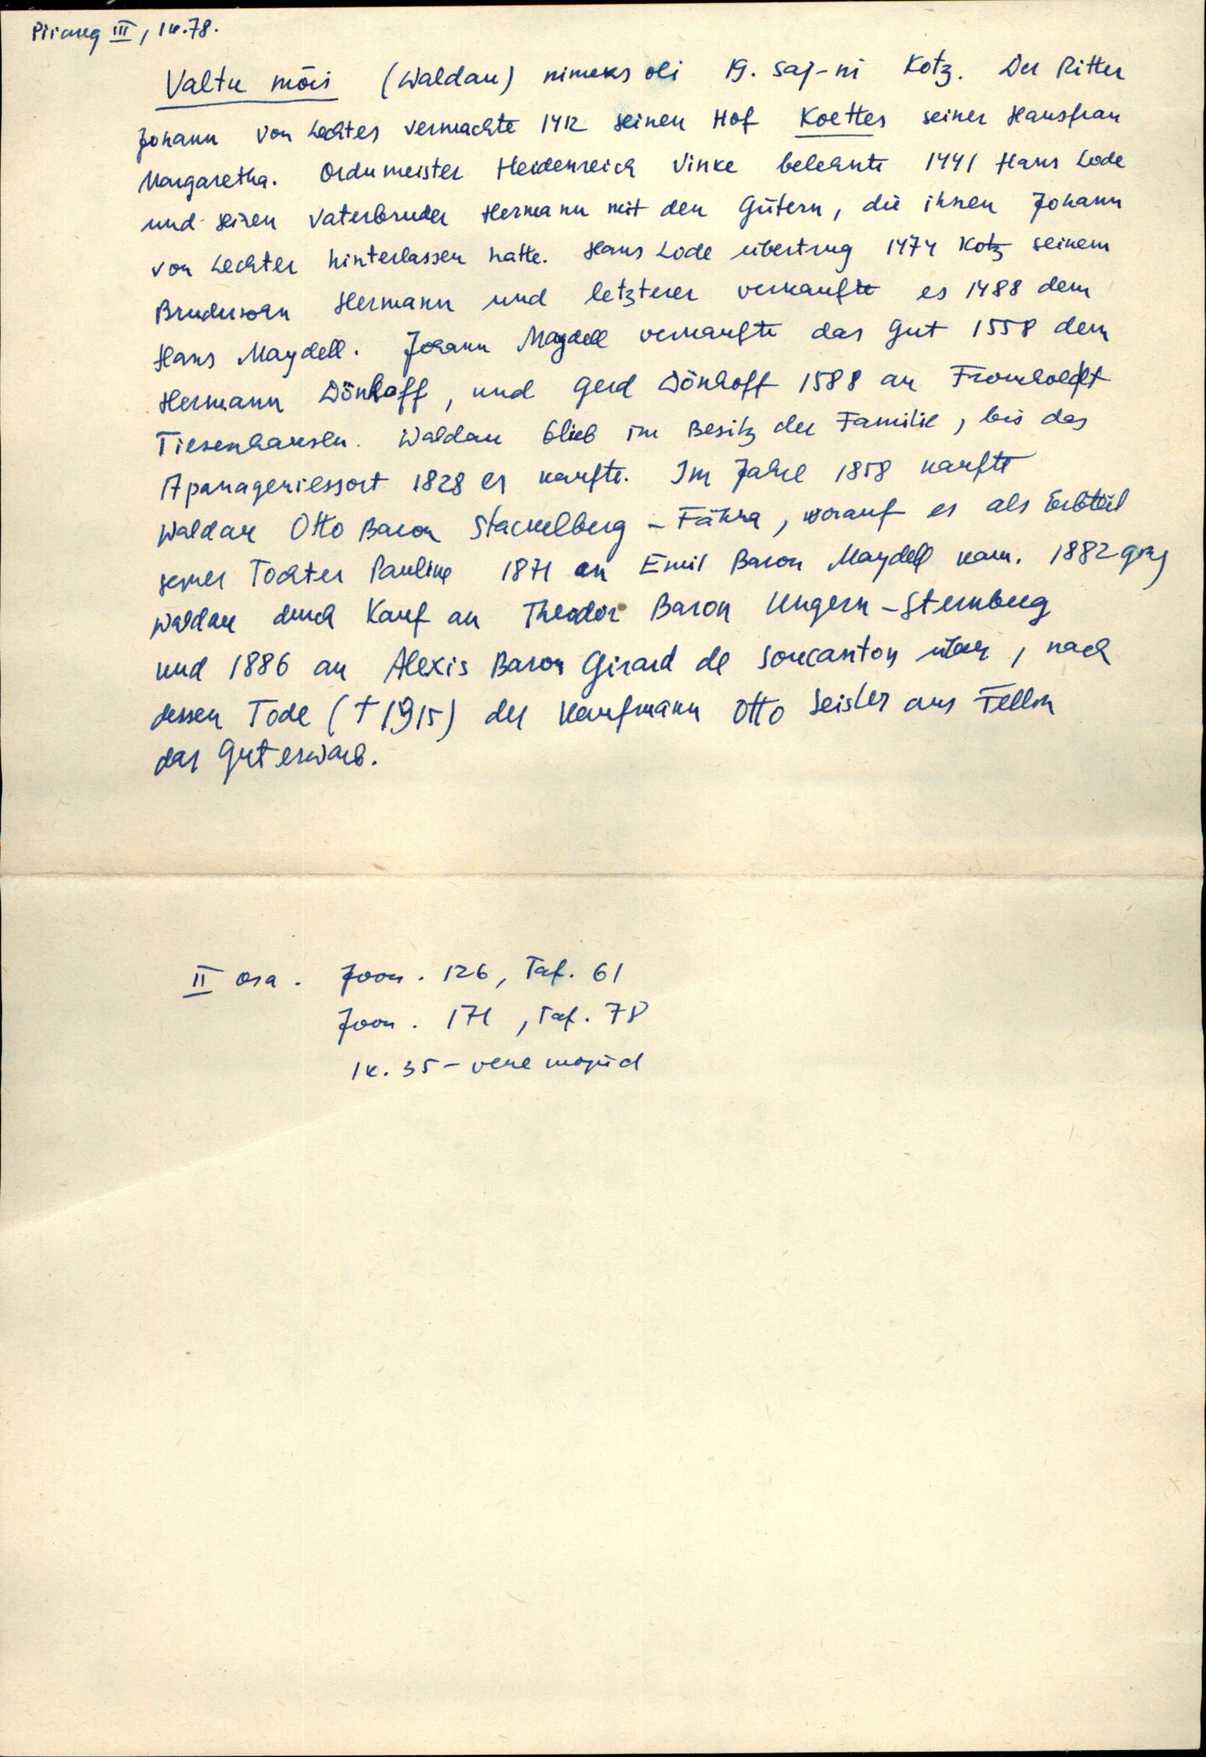 Pirang III, lk. 78.
Valtu mõis (Waldau) nimeks oli 19. saj-ni Kotz. Der Ritter
Johann von Lechtes vermachte 1412 seinen Hof Koettes seiner Hausfrau
Margaretha. Ordnmeister Heidenreich Vinke belehnte 1441 Hans Lode
und seinen Vaterbruder Hermann mit den Gütern, die ihnen Johann
von Lechter hinterlassen hatte. Hans Lode übertrug 1474 Kotz seinem
Brudersohn Hermann und letzterer verkaufte es 1488 dem
Hans Maydell. Johann Maydell verkaufte das Gut 1558 dem
Hermann Dönhoff, und Gerd Dönhoff 1588 an Fromholdt
Tiesenhausen. Waldau blieb im Besitz der Familie, bis das
Apanagenressort 1828 es kaufte. Im Jahre 1858 kaufte
Waldau Otto Baron Stackelberg - Fähna, worauf es als Erbteil
seiner Tochter Pauline 1871 an Emil Baron Maydell kam. 1882 ging
Waldau durch Kauf an Theodor Baron Ungern-Sternberg
und 1886 an Alexis Baron Girard de Soucanton über, nach
dessen Tode († 1915) der Kaufmann Otto Seisler aus Fellin
das Gut erwarb.
II osa. Joon. 126, Taf. 61
Joon. 171, Taf. 78
lk. 35 - vene mõjud